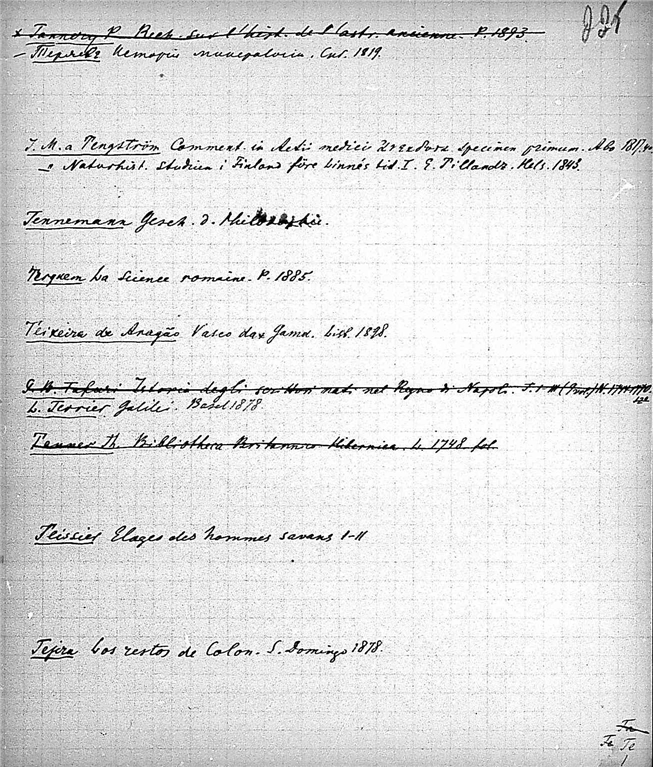 225
x Tannery P. Rech. sur l'hist. de l'astr. ancienne. P. 1893.
– Теряевъ Исторія минералогіи. Спб. 1819.
J. M. a Tengström Comment. in Actii medici specimen primum. Abo 1817.
–"– Naturhist. studien i Finland före Linnés tid. I. E. Tillandz. Hels. 1843.
Tennemann Gesch. d. Philosophie.
Terquem La science romaine. P. 1885.
Teixeira de Aragão Vasco da Gama. Lisb. 1898.
G. B. Tafuri Istoria degli scrittori nati nel Regno di Napoli. N.
L. Terrier Galilei. Basel 1878
Tanner Th. Bibliotheca Britannico Hibernica. L. 1748 fol.
Teissier Eloges des hommes savans I–II
Tejera Los restos de Colon. S. Domingo 1878.
Te
Te
1